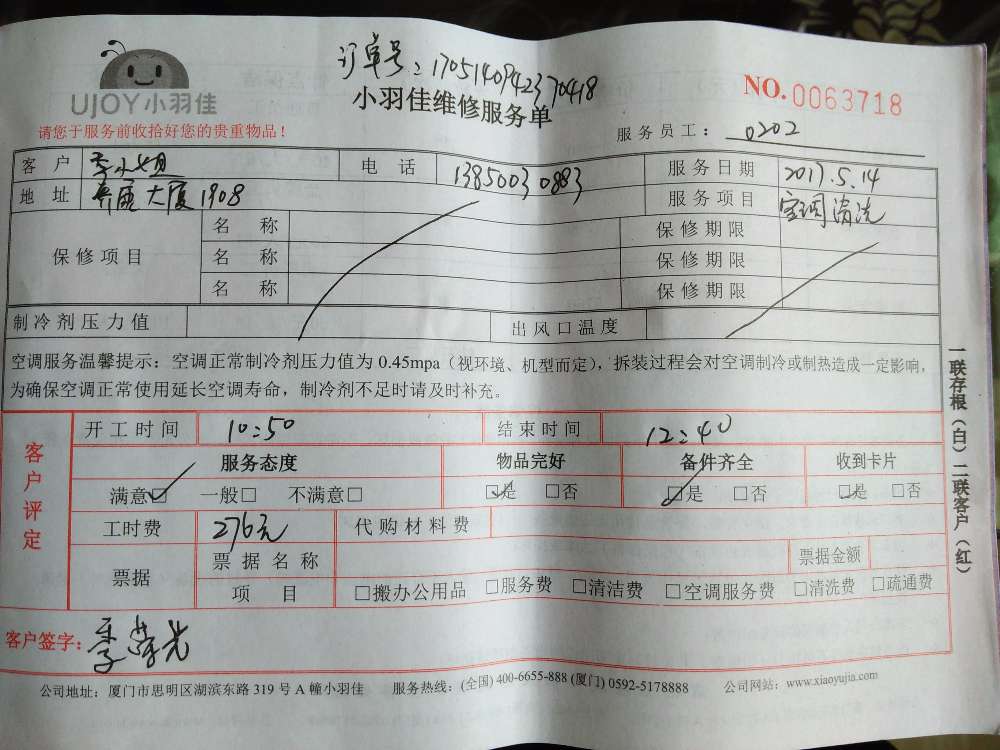 订单号：170514094237 0418
UJOY小羽佳
小羽佳维修服务单
NO.0063718
请您于服务前收拾好您的贵重物品！
服务员工： 0202
客户 李小姐 电话 13850030883 服务日期 2017.5.14
地址 大厦1908 服务项目 空调清洗
保修项目 名称 保修期限
名称 保修期限
名称 保修期限
制冷剂压力值 出风口温度
空调服务温馨提示：空调正常制冷剂压力值为0.45mpa（视环境、机型而定），拆装过程会对空调制冷或制热造成一定影响，
为确保空调正常使用延长空调寿命，制冷剂不足时请及时补充。
客户评定
开工时间 10:50 结束时间 12:40
服务态度 物品完好 备件齐全 收到卡片
满意☑ 一般□ 不满意□ ☑是 □否 ☑是 □否 ☑是 □否
工时费 276元 代购材料费
票据 票据名称 票据金额
项目 □搬办公用品 □服务费 □清洁费 □空调服务费 □清洗费 □疏通费
客户签字：
公司地址：厦门市思明区湖滨东路319号A幢小羽佳 服务热线：(全国) 400-6655-888 (厦门) 0592-5178888 公司网站：www.xiaoyujia.com
一联存根（白）二联客户（红）